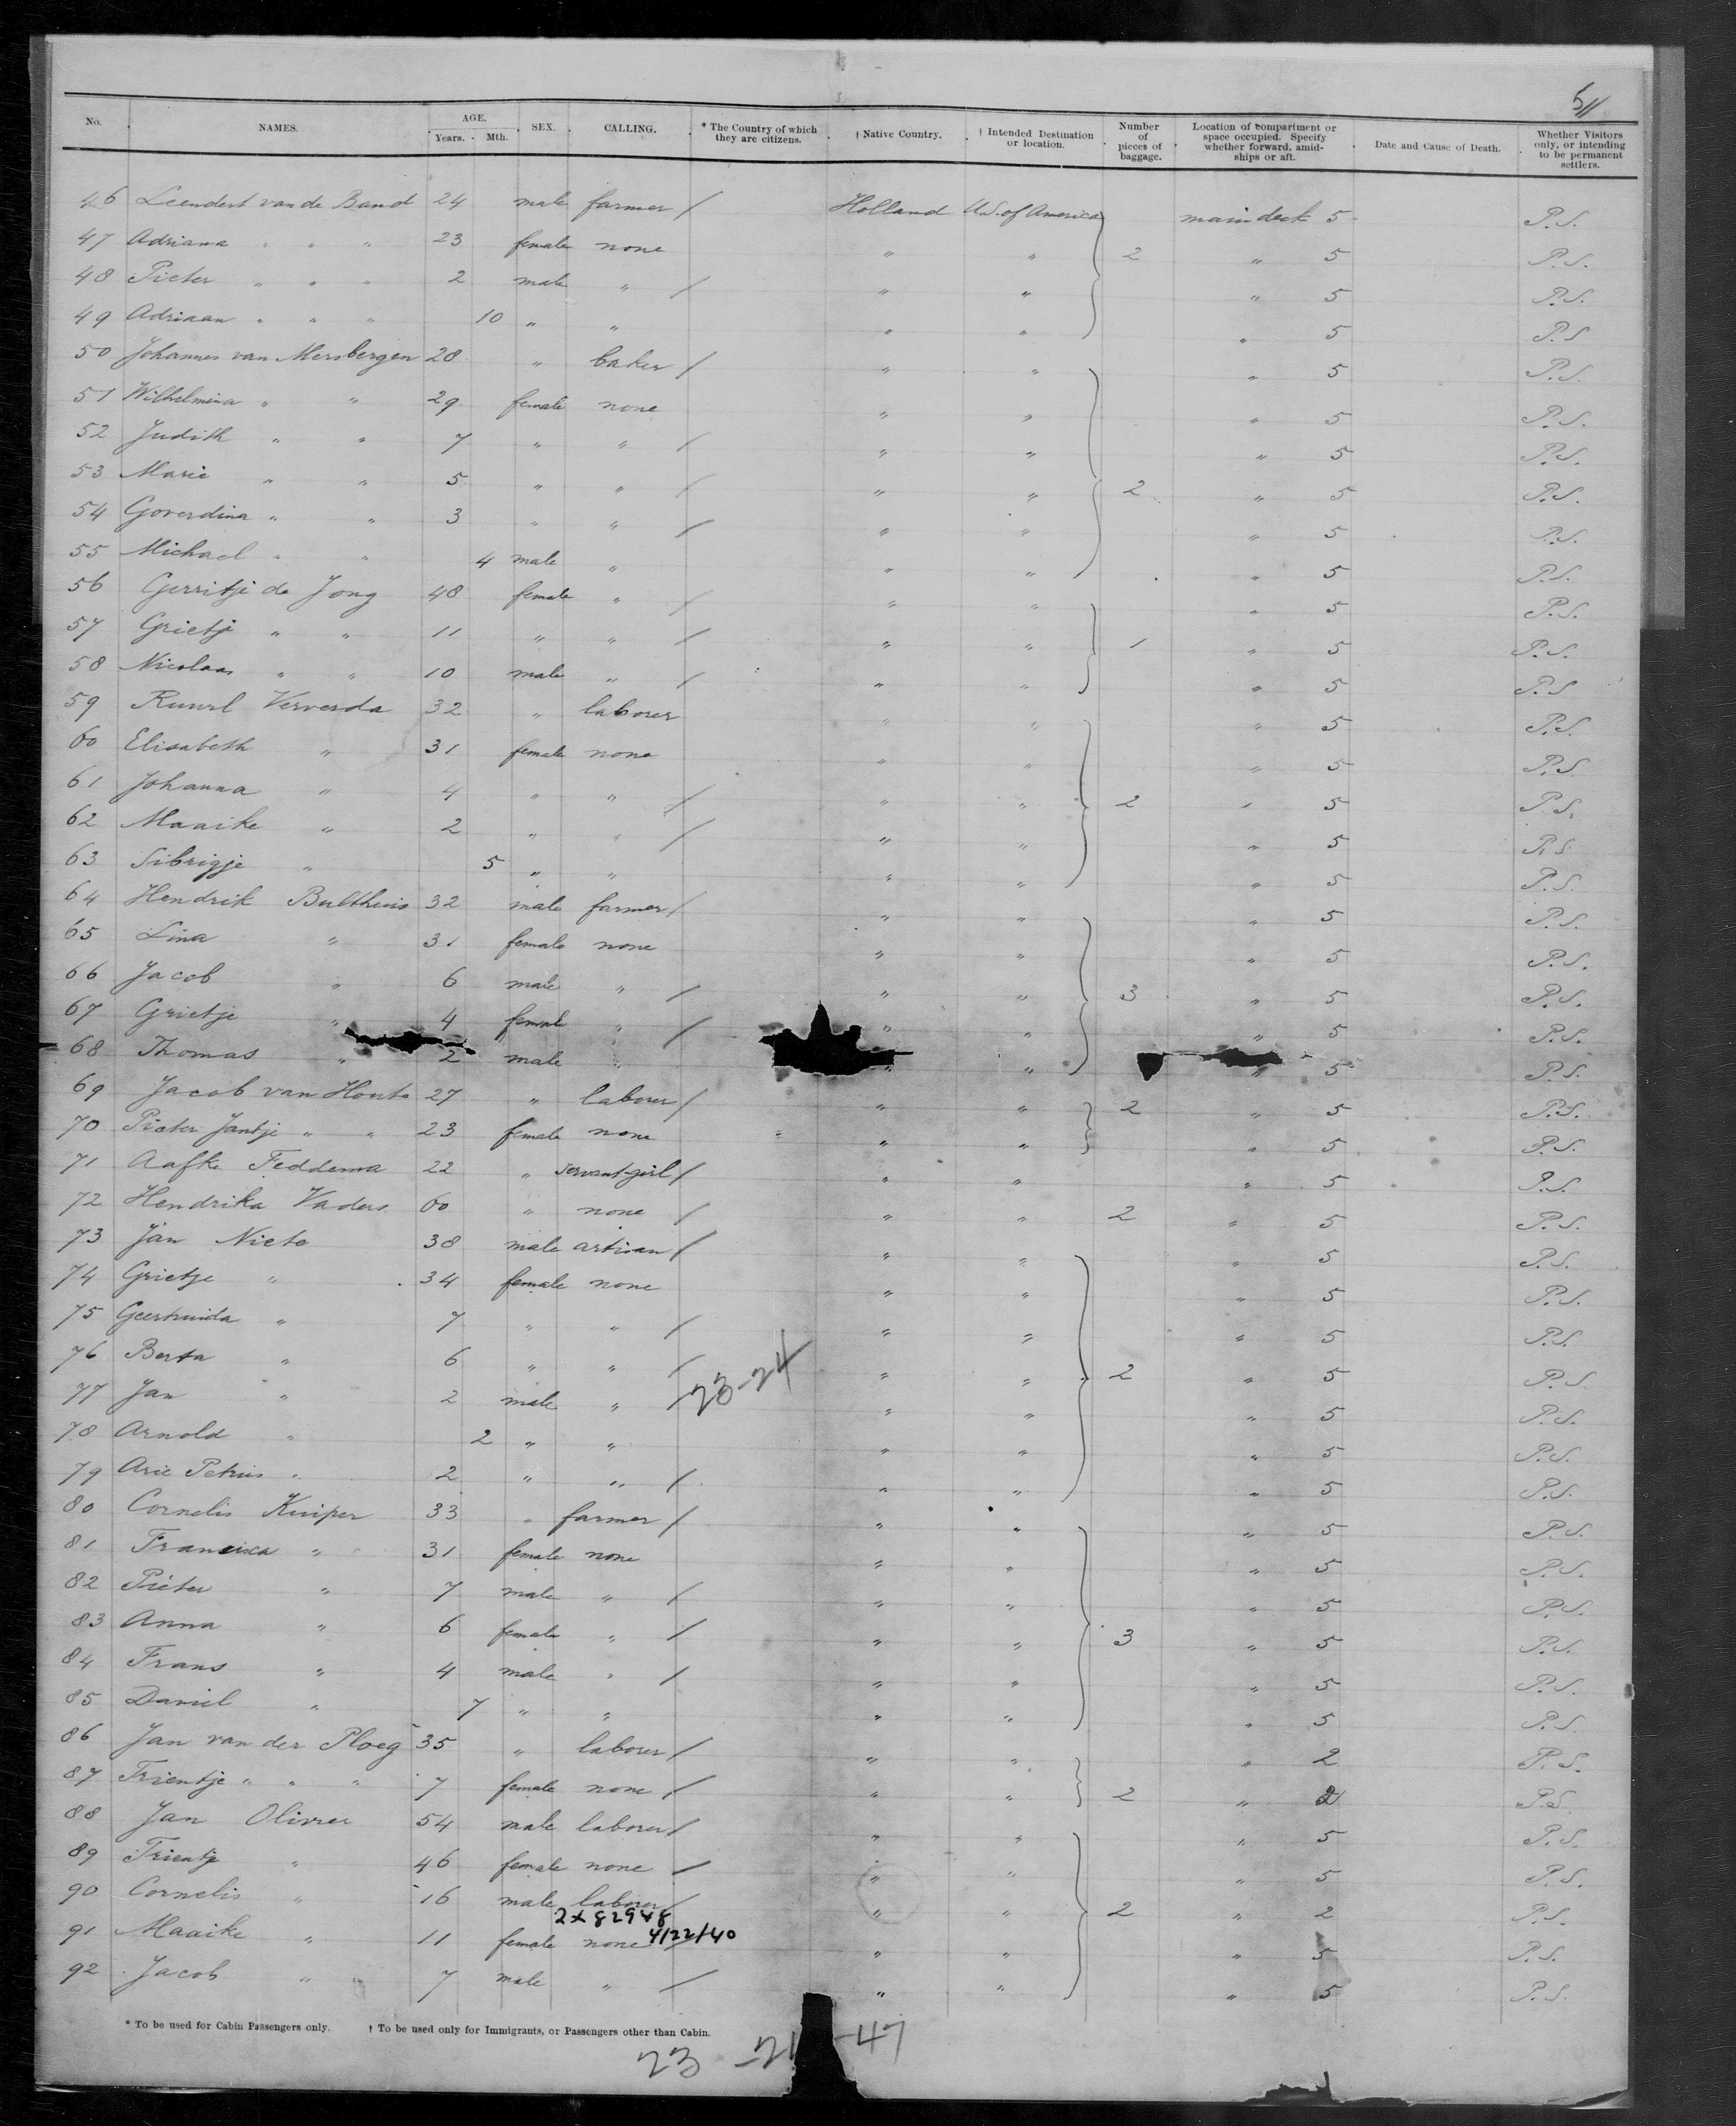 511
No. NAMES. AGE. Years. Mth. SEX. CALLING. * The Country of which they are citizens. † Native Country. † Intended Destination or location. Number of pieces of baggage. Location of compartment or space occupied. Specify whether forward, amidships or aft. Date and Cause of Death. Whether Visitors only, or intending to be permanent settlers.
46 Leendert van de Band 24 male farmer / Holland U.S. of America main deck 5 P.S.
47 Adriana " " " 23 female none " " 2 " 5 P.S.
48 Pieter " " " 2 male " / " " " 5 P.S.
49 Adriaan " " " 10 " " " " " 5 P.S
50 Johannes van Mersbergen 28 " baker / " " " 5 P.S.
51 Wilhelmina " " 29 female none " " " 5 P.S.
52 Judith " " 7 " " / " " " 5 P.S.
53 Marie " " 5 " " / " " 2 " 5 P.S.
54 Goverdina " " 3 " " / " " " 5 P.S.
55 Michael " " 4 male " " " " 5 P.S.
56 Gerritje de Jong 48 female " / " " " 5 P.S.
57 Grietje " " 11 " " / " " 1 " 5 P.S.
58 Nicolaas " " 10 male " / " " " 5 P.S
59 Ruurl Ververda 32 " laborer " " " 5 P.S.
60 Elisabeth " 31 female none " " " 5 P.S.
61 Johanna " 4 " " / " " 2 " 5 P.S.
62 Maaike " 2 " " / " " " 5 P.S.
63 Sibrigje " 5 " " " " " 5 P.S.
64 Hendrik Bulthuis 32 male farmer / " " " 5 P.S.
65 Lina " 31 female none " " " 5 P.S.
66 Jacob " 6 male " / " " 3 " 5 P.S.
67 Grietje " 4 female " / " " " 5 P.S.
68 Thomas " 2 male " " " " 5 P.S.
69 Jacob van Houte 27 " laborer / " " 2 " 5 P.S.
70 Pieter Jantje " " 23 female none " " " 5 P.S.
71 Aafke Feddema 22 " servant-girl / " " " 5 P.S.
72 Hendrika Vaders 60 " none / " " 2 " 5 P.S.
73 Jan Niete 38 male artisan / " " " 5 P.S.
74 Grietje " 34 female none " " " 5 P.S.
75 Geertruida " 7 " " / " " " 5 P.S.
76 Berta " 6 " " / " " 2 " 5 P.S.
77 Jan " 2 male " / 23-24 " " " 5 P.S.
78 Arnold " 2 " " " " " 5 P.S.
79 Arie Petrus " 2 " " / " " " 5 P.S.
80 Cornelis Kuiper 33 " farmer / " " " 5 P.S.
81 Francisca " 31 female none " " " 5 P.S.
82 Pieter " 7 male " / " " " 5 P.S.
83 Anna " 6 female " / " " 3 " 5 P.S.
84 Frans " 4 male " / " " " 5 P.S.
85 Daniel " 7 " " " " " 5 P.S.
86 Jan van der Ploeg 35 " laborer / " " " 2 P.S.
87 Trientje " " " 7 female none / " " 2 " 2 P.S.
88 Jan Olivier 54 male laborer / " " " 5 P.S.
89 Trientje " 46 female none / " " " 5 P.S.
90 Cornelis " 16 male laborer / " " 2 " 2 P.S.
2x82948
4/22/40
91 Maaike " 11 female none / " " " 5 P.S.
92 Jacob " 7 male " / " " " 5 P.S.
* To be used for Cabin Passengers only. † To be used only for Immigrants, or Passengers other than Cabin.
23 -21 -47